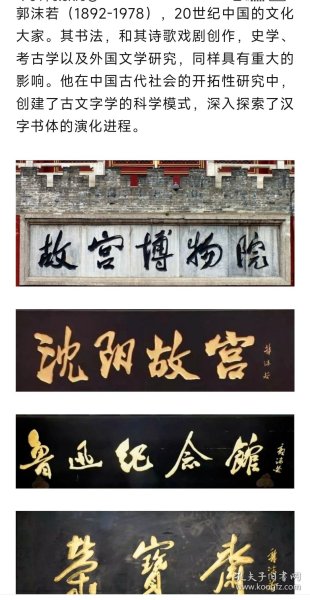 郭沫若（1892-1978），20世纪中国的文化
大家。其书法，和其诗歌戏剧创作，史学、
考古学以及外国文学研究，同样具有重大的
影响。他在中国古代社会的开拓性研究中，
创建了古文字学的科学模式，深入探索了汉
字书体的演化进程。
故宫博物院
沈阳故宫
郭沫若
鲁迅纪念馆
郭沫若
荣寶斋
郭沫若
孔夫子旧书网
www.kongfz.com